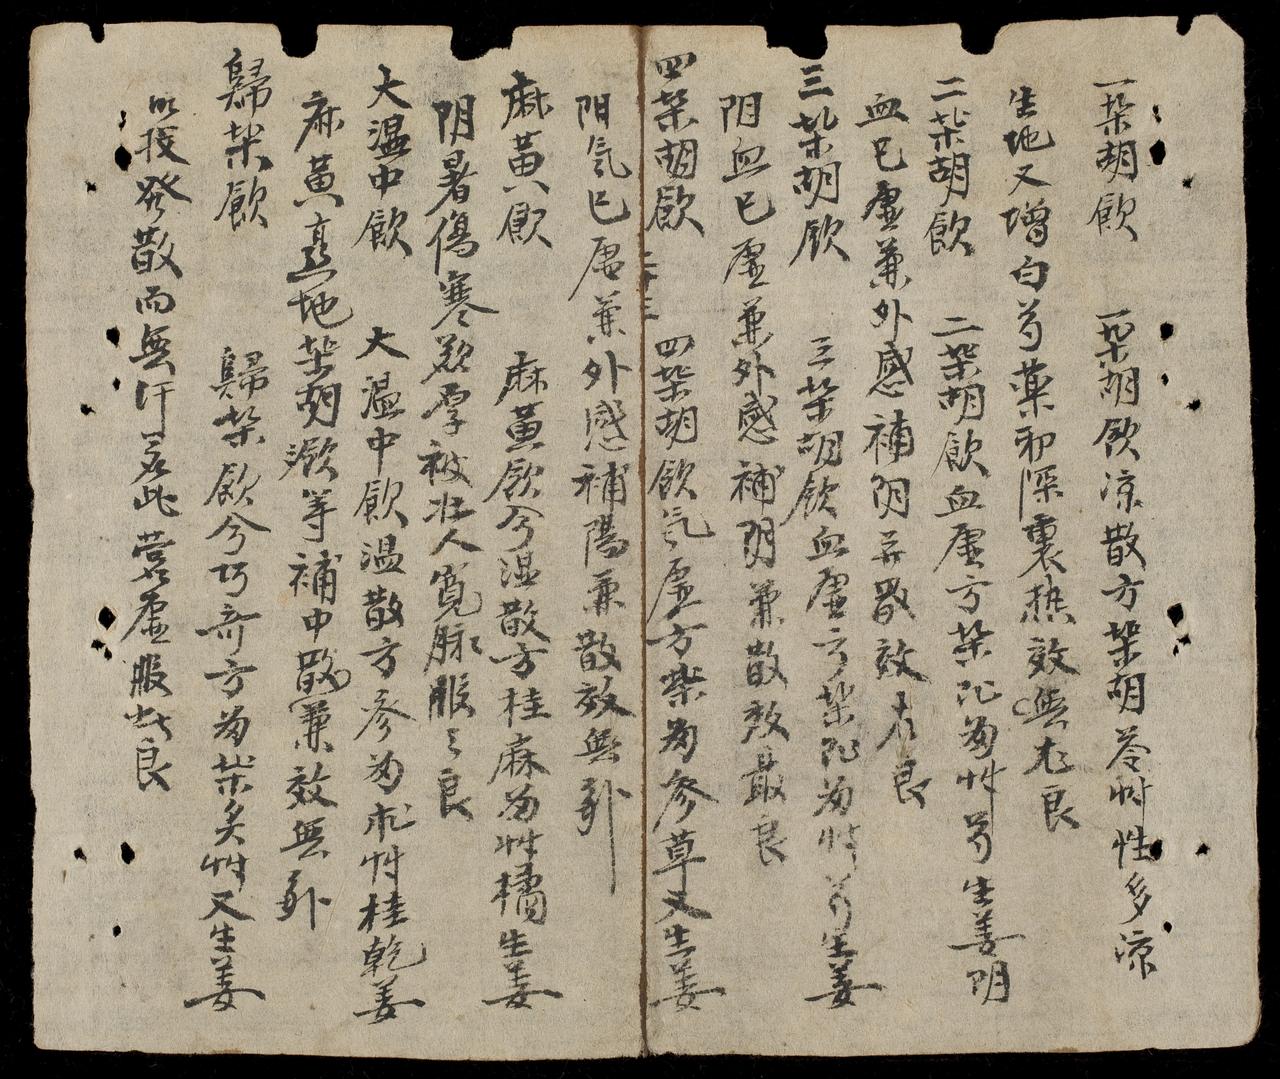 一柴胡飲 一柴胡飲凉散方柴胡芩艸性多凉
生地又增白芍藥邪深裏热效無尤良
二柴胡飲 二柴胡飲血虛方柴 為艸芍生姜
血已虛兼外感補阴 散效尤良
三柴胡飲 三柴胡飲血虛方柴 為艸芍生姜
阴血已虛兼外感補阴兼散效最良
四柴胡飲 四柴胡飲气虛方柴為參草又生姜
阳气已虛兼外感補陽兼散效無
麻黃飲 麻黃飲兮温散方桂麻為艸橘生姜
阴暑傷寒 厚被壯人寬脉服之良
大温中飲 大温中飲温散方參為朮艸桂乾姜
麻黃 地柴胡 等補中散兼效無
歸柴飲 歸柴飲兮巧奇方為柴炙艸又生姜
發散而無汗若此營虛服此良